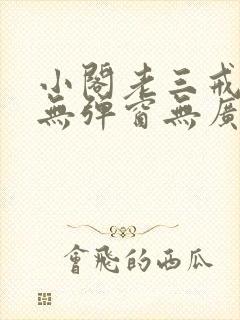 小閣老三戒
無彈窗無廣
會飛的西瓜